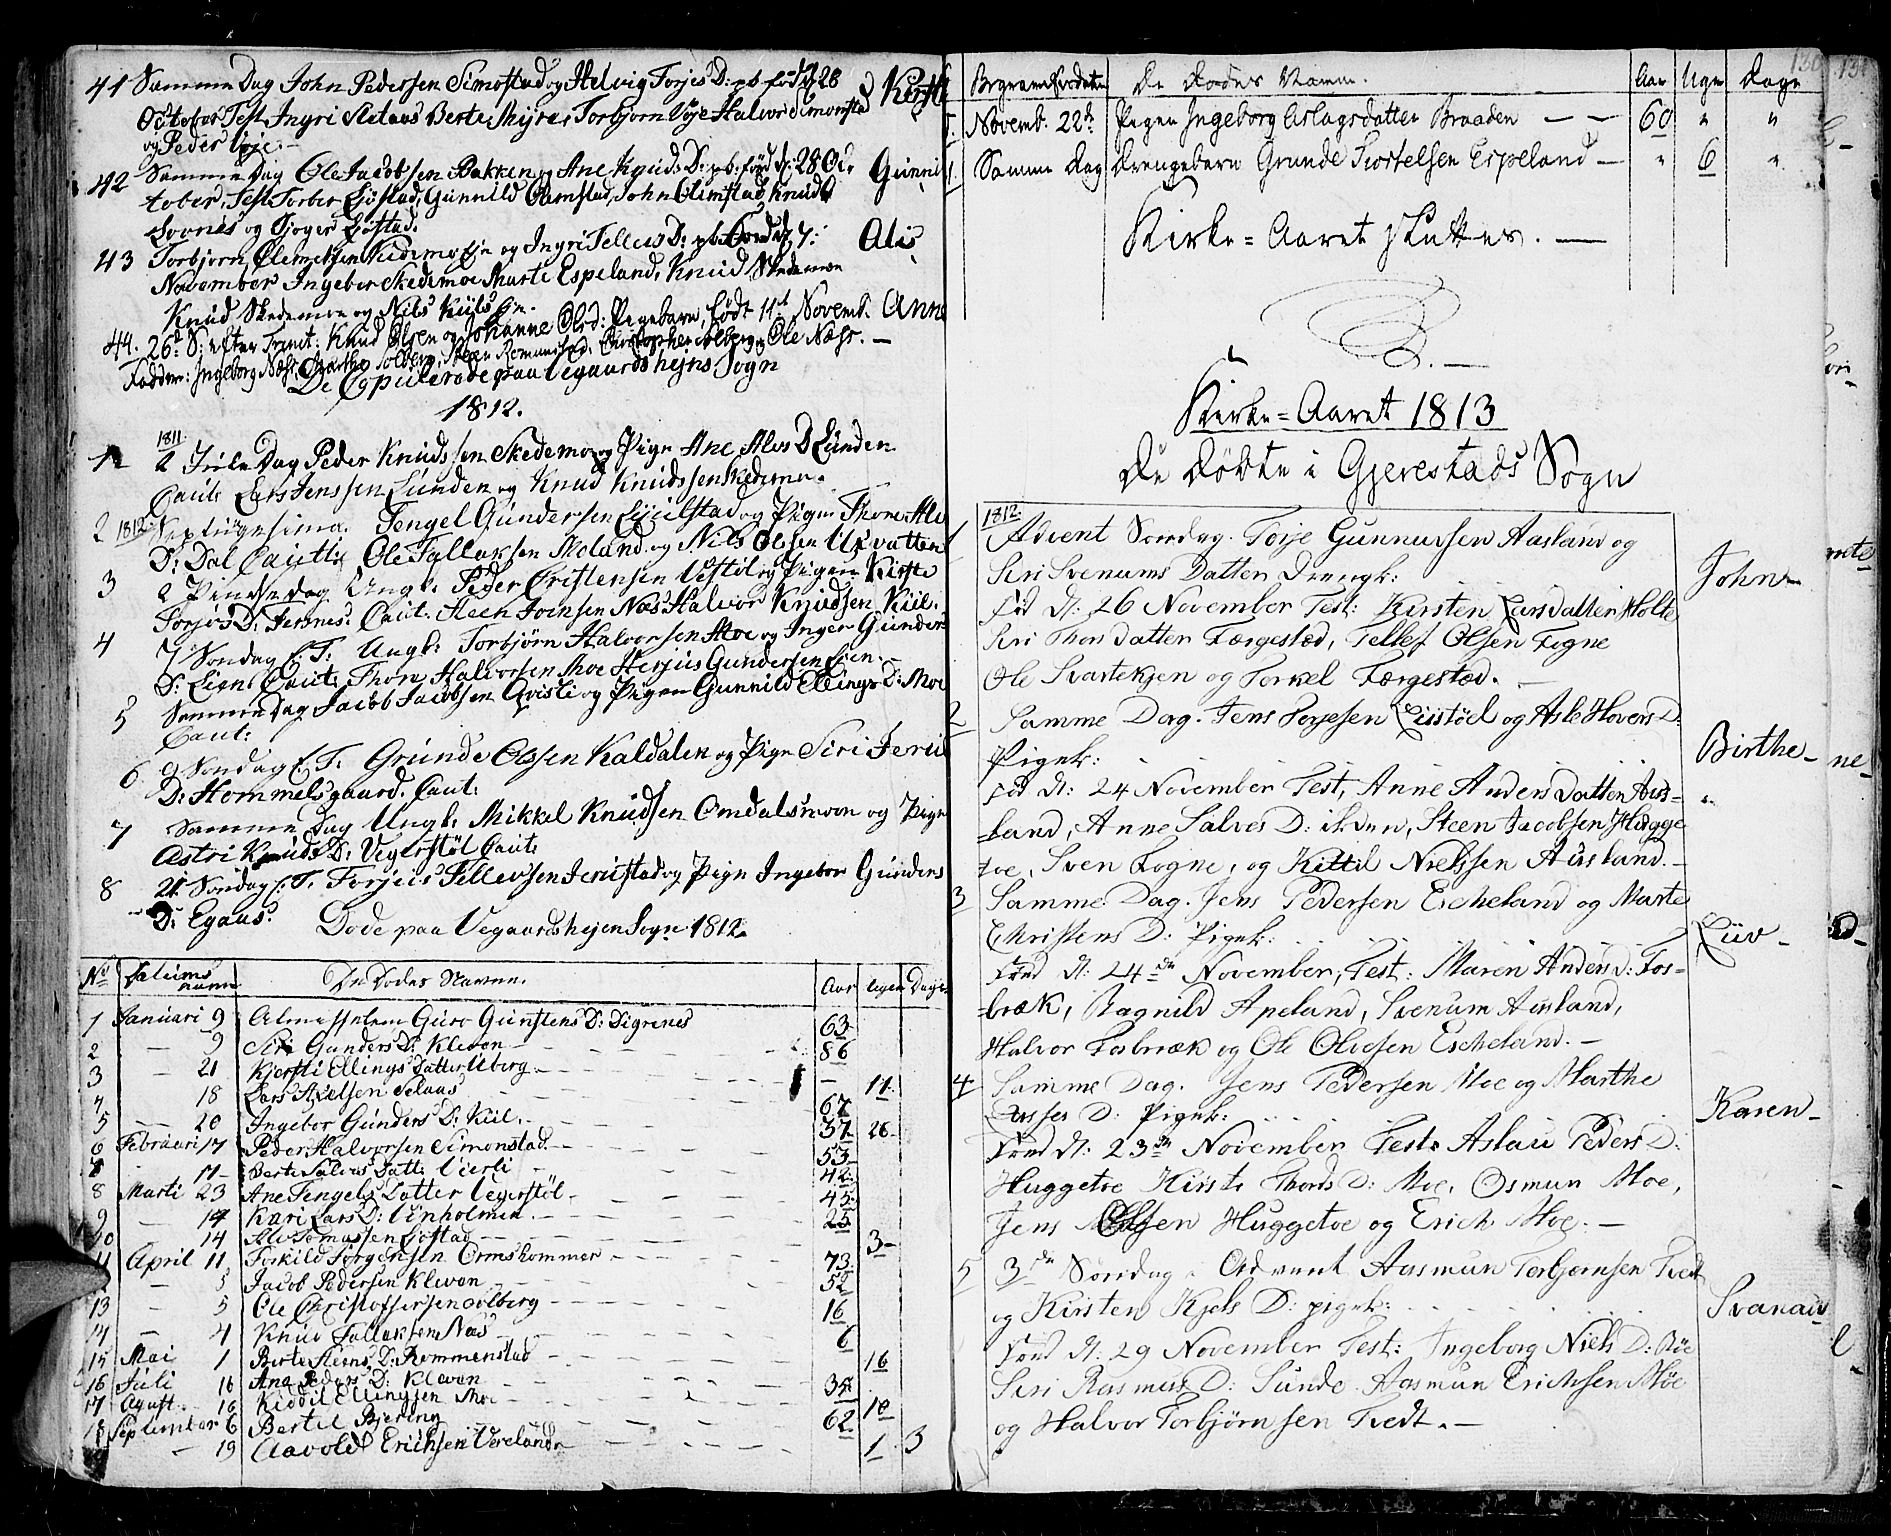 41 Samme Dag John Pedersen Simostad og Helvig Torjes D: pb. fød d. 28 Kirsti
October Test Ingri Selaas Berte Myre, Torbjorn Voje Halvor Simonstad
og Peder Voje. —
42 Samme Dag Ole Jacobsen Bakken og Ane Knuds D: pb: fød d: 28 Oc- Gunnil
tober, Test Torber Ljøstad, Gunnild Olimstad, John Olimstad, Knud
Lovnes og Jorgen Ljøstad.
43 Torbjorn Clemetsen Skedemo og Ingri Tellefs D: pb. fød d. 7: Alis
November Ingebor Skedemoe Marte Espeland, Knud Skedemoe
Knud Skedemoe og Nils Kiils
44. 26d. S: efter Trinit: Knud Olsen og Johanne Olsd: Pigebarn, født 11t Novemb. Anne
Faddere: Ingeborg Næss, Marthe Solberg, Steen Romundstad, Christopher Solberg, Ole Næss. —
De Copulerede paa Vegaardshejns Sogn
1812.
1811.
1 2 Jule Dag Peder Knudssen Skedemo og Pigen Ane Alvs D Lunden
Caut: Lars Jenssen Lunden og Knud Knudssen Skedemo.
2 1812 Septuagesima. Tengel Gundersen Ljøstad og Pigen Thone Alv
D: Dal Caut: Ole Tallaksen Moland og Nils Olsen Ufvatten
3 2 Pindsedag Ungk: Peder Cristensen Vestøl og Pigen Kirste
Torjus D: Fennes. Caut. Steen Joinsen Næs Halvor Knudsen Kiil.
4 7 Søndag f. T. Ungk: Torbjørn Halvorsen Moe og Inger Gunder
D: Lien Caut: Thore Halvorsen Moe Herjus Gundersen Lien.
5 Samme dag Jacob Jacobsen Qvisti og Pigen Gunnild Ellings D: Moe
Caut:
6 9 Søndag f. T. Grunde Olssen Kaldalen og Pigen Siri Jerul
D: Hommelsgaard. Caut:
7 Samme Dag Ungk: Mikkel Knudsen Omdalsmoen og Pigen
Astri Knuds D: Vegerstøl Caut:
8 21 Søndag f. T. Torjus Tellevsen Jerulstad og Pigen Ingebor Gunders
D: Egaas.
Døde paa Vegaardshejen Sogn 1812.
No Datums De Dødes Navne. Aar Uger Dage
1 Januari 9 Almesselem Guro Gunstens D: Digrenes 63
2 — 9 Siri Gunders D: Klevan 86
3 — 21 Kjersti Ellings Datter Uberg — 11
4 18 Lars Axelsen Selaas 67
5 — 20 Ingebor Gunders D: Kiil. 37 26
6 Februari 17 Peder Halvorsen Simonstad 53
7 11 Berte Salves Datt: Vierli 42
8 Marti 23 Ane Tengels Datter Vegerstøl 45
9 — 14 Kari Lars D: Vinholmen 25
10 14 Alv Tomassen Ljostad 3
11 April 11 Torkild Jorgensen Ormskommer 73
12 — 5 Jacob Pedersen Klevan 52
13 — 5 Ole Christoffersen Solberg 16
14 — 4 Knud Tallaksen Næs 6
15 Mai 1 Berte Steens D: Rommenstad 16
16 Juli 16 Ane Peders D: Klevan 35
17 Agust 16 Kiddil Ellingsen Moe 10
18 September 6 Bertil Bjering 62
— 19 Aavold Erichsen Vereland 1 3
130
Begravelsesdatum De Dødes Navne. Aar Uger Dage
Novemb. 22de Pigen Ingeborg Aslagsdatter Braaden — — 60 " "
Samme Dag Drengebarn Grunde Kortelsen Espeland — " 6 "
Kirke=Aaret slutter. —
Kirke=Aaret 1813
De Døbte i Gjerestads Sogn
1812.
1 Advent Søndag. Torje Gunnufsen Aasland og John —
Siri Svenums Datter Drengb:
Fød d: 26 November Test: Kirsten Larsdatter Holte
Siri Thordatter Færgestad, Tellef Olsen Fogne
Ole Svartekjen og Torkel Færgestad. —
2 Samme Dag. Jens Torjesen Lisstøel og Asle Hovers D: Birthe —
Pigeb:
Fød d: 24 November Test, Anne Anders Datter Aus=
land, Anne Salves D: , Steen Jacobsen Hugge
toe, Sven Fogne, og Kittil Nielssen Ausland. —
3 Samme Dag. Jens Pedersen Escheland og Marte Liiv —
Christens D: Pigeb:
Fød d. 24de November, Test: Maren Anders D: Fos=
bræk, Ragnild Apeland, Svenum Ausland,
Halvor Fosbræk og Ole Olvesen Escheland. —
4 Samme Dag. Jens Pedersen Moe og Marthe Karen —
Lasses D: Pigeb:
Fød d. 23de November Test. Aslau Peders D:
Huggetoe Kirste Thords D: Moe, Osmun Moe,
Jens Olsen Huggetoe og Erich Moe. —
5 3de Søndag i Advent Aasmun Torbjørnsen Tvedt Svanau
og Kirsten Kjels D: pigeb:
Fød d. 29 November Test: Ingeborg Niels D: Røe
Siri Rasmus D: Sunde Aasmun Erichsen Møe
og Halvor Torbjørnsen Tvedt. —